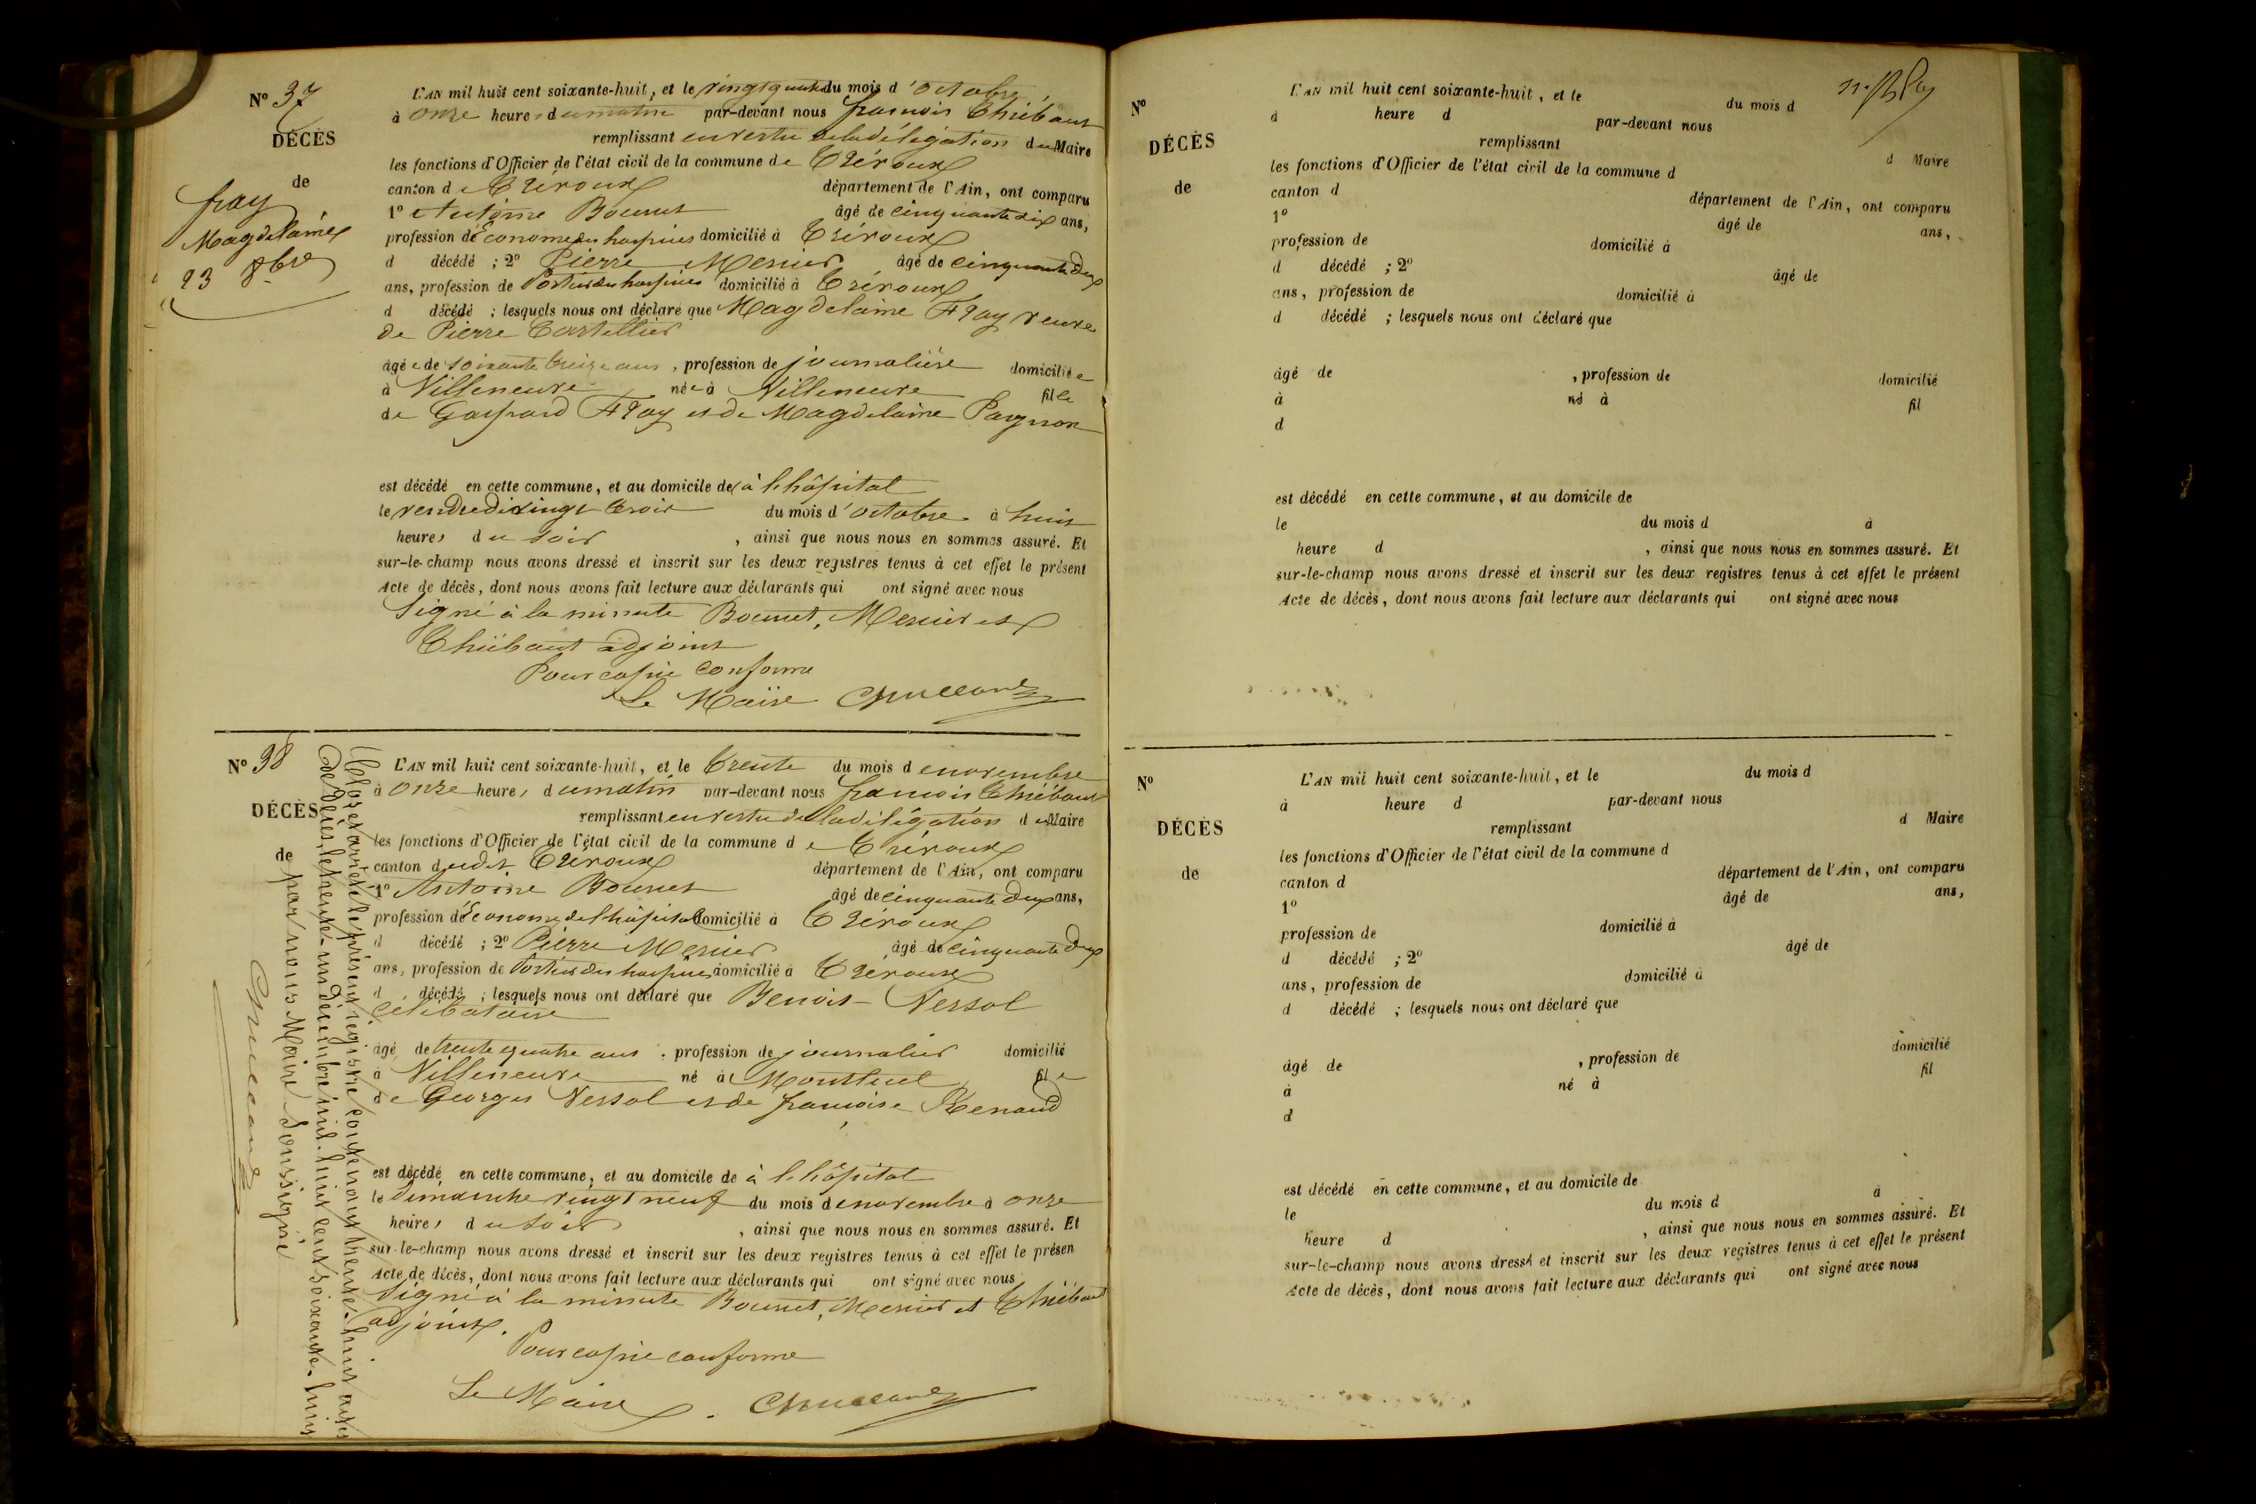 N° 37
DÉCÈS
de
fray
Magdelaine
23 8bre
L'AN mil huit cent soixante-huit, et le vingtquatre du mois d'octobre
à onze heures du matin par-devant nous françois Thiébaut
remplissant en vertu de la délégation du Maire
les fonctions d'Officier de l'état civil de la commune de Trévoux
canton de Trévoux département de l'Ain, ont comparu
1° Antoine Bounet âgé de cinquante dix ans,
profession d'Econome des hospices domicilié à Trévoux
d décédé ; 2° Pierre Mesnier âgé de cinquante deux
ans, profession de Portier des hospices domicilié à Trévoux
d décédé ; lesquels nous ont déclaré que Magdelaine Fray veuve
de Pierre Castellier
âgée de soixante treize ans, profession de journalière domiciliée
à Villeneuve née à Villeneuve fille
de Gaspard Fray et de Magdelaine Pargnon
est décédé en cette commune, et au domicile de à l'hôpital
le vendredi vingt trois du mois d'octobre à huit
heures du soir, ainsi que nous nous en sommes assuré. Et
sur-le-champ nous avons dressé et inscrit sur les deux registres tenus à cet effet le présent
Acte de décès, dont nous avons fait lecture aux déclarants qui ont signé avec nous
Signé à la minute Bounet, Mesnier et
Thiébaut adjoint
Pour copie conforme
Le Maire
N° 38
DÉCÈS
de
L'AN mil huit cent soixante-huit, et le trente du mois de novembre
à onze heures du matin par-devant nous françois Thiébaut
remplissant en vertu de la délégation du Maire
les fonctions d'Officier de l'état civil de la commune de Trévoux
canton dudit Trévoux département de l'Ain, ont comparu
1° Antoine Bounet âgé de cinquante deux ans,
profession d'Econome de l'hôpital domicilié à Trévoux
d décédé ; 2° Pierre Mesnier âgé de cinquante deux
ans, profession de Portier des hospices domicilié à Trévoux
d décédé ; lesquels nous ont déclaré que Benoit Vessol
célibataire
âgé de trente quatre ans, profession de journalier domicilié
à Villeneuve né à Montluel fils
de Georges Vessol et de françoise Renaud
est décédé en cette commune, et au domicile de à l'hôpital
le dimanche vingt neuf du mois de novembre à onze
heures du soir, ainsi que nous nous en sommes assuré. Et
sur-le-champ nous avons dressé et inscrit sur les deux registres tenus à cet effet le présen
Acte de décès, dont nous avons fait lecture aux déclarants qui ont signé avec nous
Signé à la minute Bounet, Mesnier et Thiébaut
adjoint.
Pour copie conforme
Le Maire
Clos et arrêté le présent registre contenant trente-huit actes
de décès, le trente-un décembre mil huit cent soixante-huit
par nous Maire soussigné
N°
DÉCÈS
de
L'AN mil huit cent soixante-huit, et le du mois d
à heure d par-devant nous
remplissant d Maire
les fonctions d'Officier de l'état civil de la commune d
canton d département de l'Ain, ont comparu
1° âgé de ans,
profession de domicilié à
d décédé ; 2° âgé de
ans, profession de domicilié à
d décédé ; lesquels nous ont déclaré que
âgé de , profession de domicilié
à né à fil
d
est décédé en cette commune, et au domicile de
le du mois d à
heure d , ainsi que nous nous en sommes assuré. Et
sur-le-champ nous avons dressé et inscrit sur les deux registres tenus à cet effet le présent
Acte de décès, dont nous avons fait lecture aux déclarants qui ont signé avec nous
N°
DÉCÈS
de
L'AN mil huit cent soixante-huit, et le du mois d
à heure d par-devant nous
remplissant d Maire
les fonctions d'Officier de l'état civil de la commune d
canton d département de l'Ain, ont comparu
1° âgé de ans,
profession de domicilié à
d décédé ; 2° âgé de
ans, profession de domicilié à
d décédé ; lesquels nous ont déclaré que
âgé de , profession de domicilié
à né à fil
d
est décédé en cette commune, et au domicile de
le du mois d à
heure d , ainsi que nous nous en sommes assuré. Et
sur-le-champ nous avons dressé et inscrit sur les deux registres tenus à cet effet le présent
Acte de décès, dont nous avons fait lecture aux déclarants qui ont signé avec nous